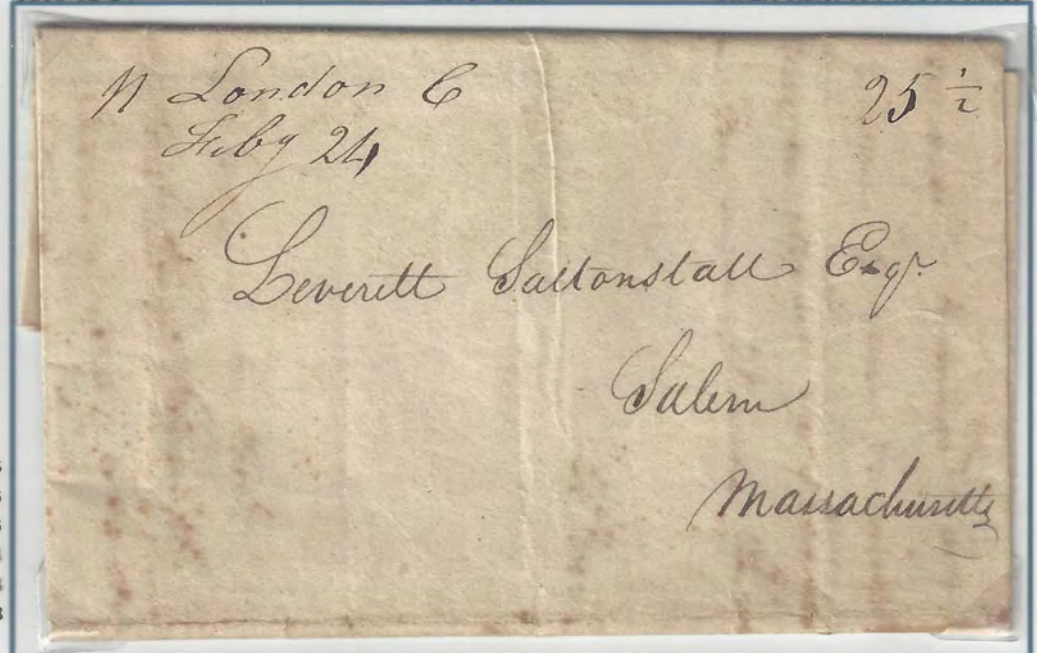 N London C 25 1/2
Feby 24
Leverett Saltonstall Esqr.
Salem
Massachusetts